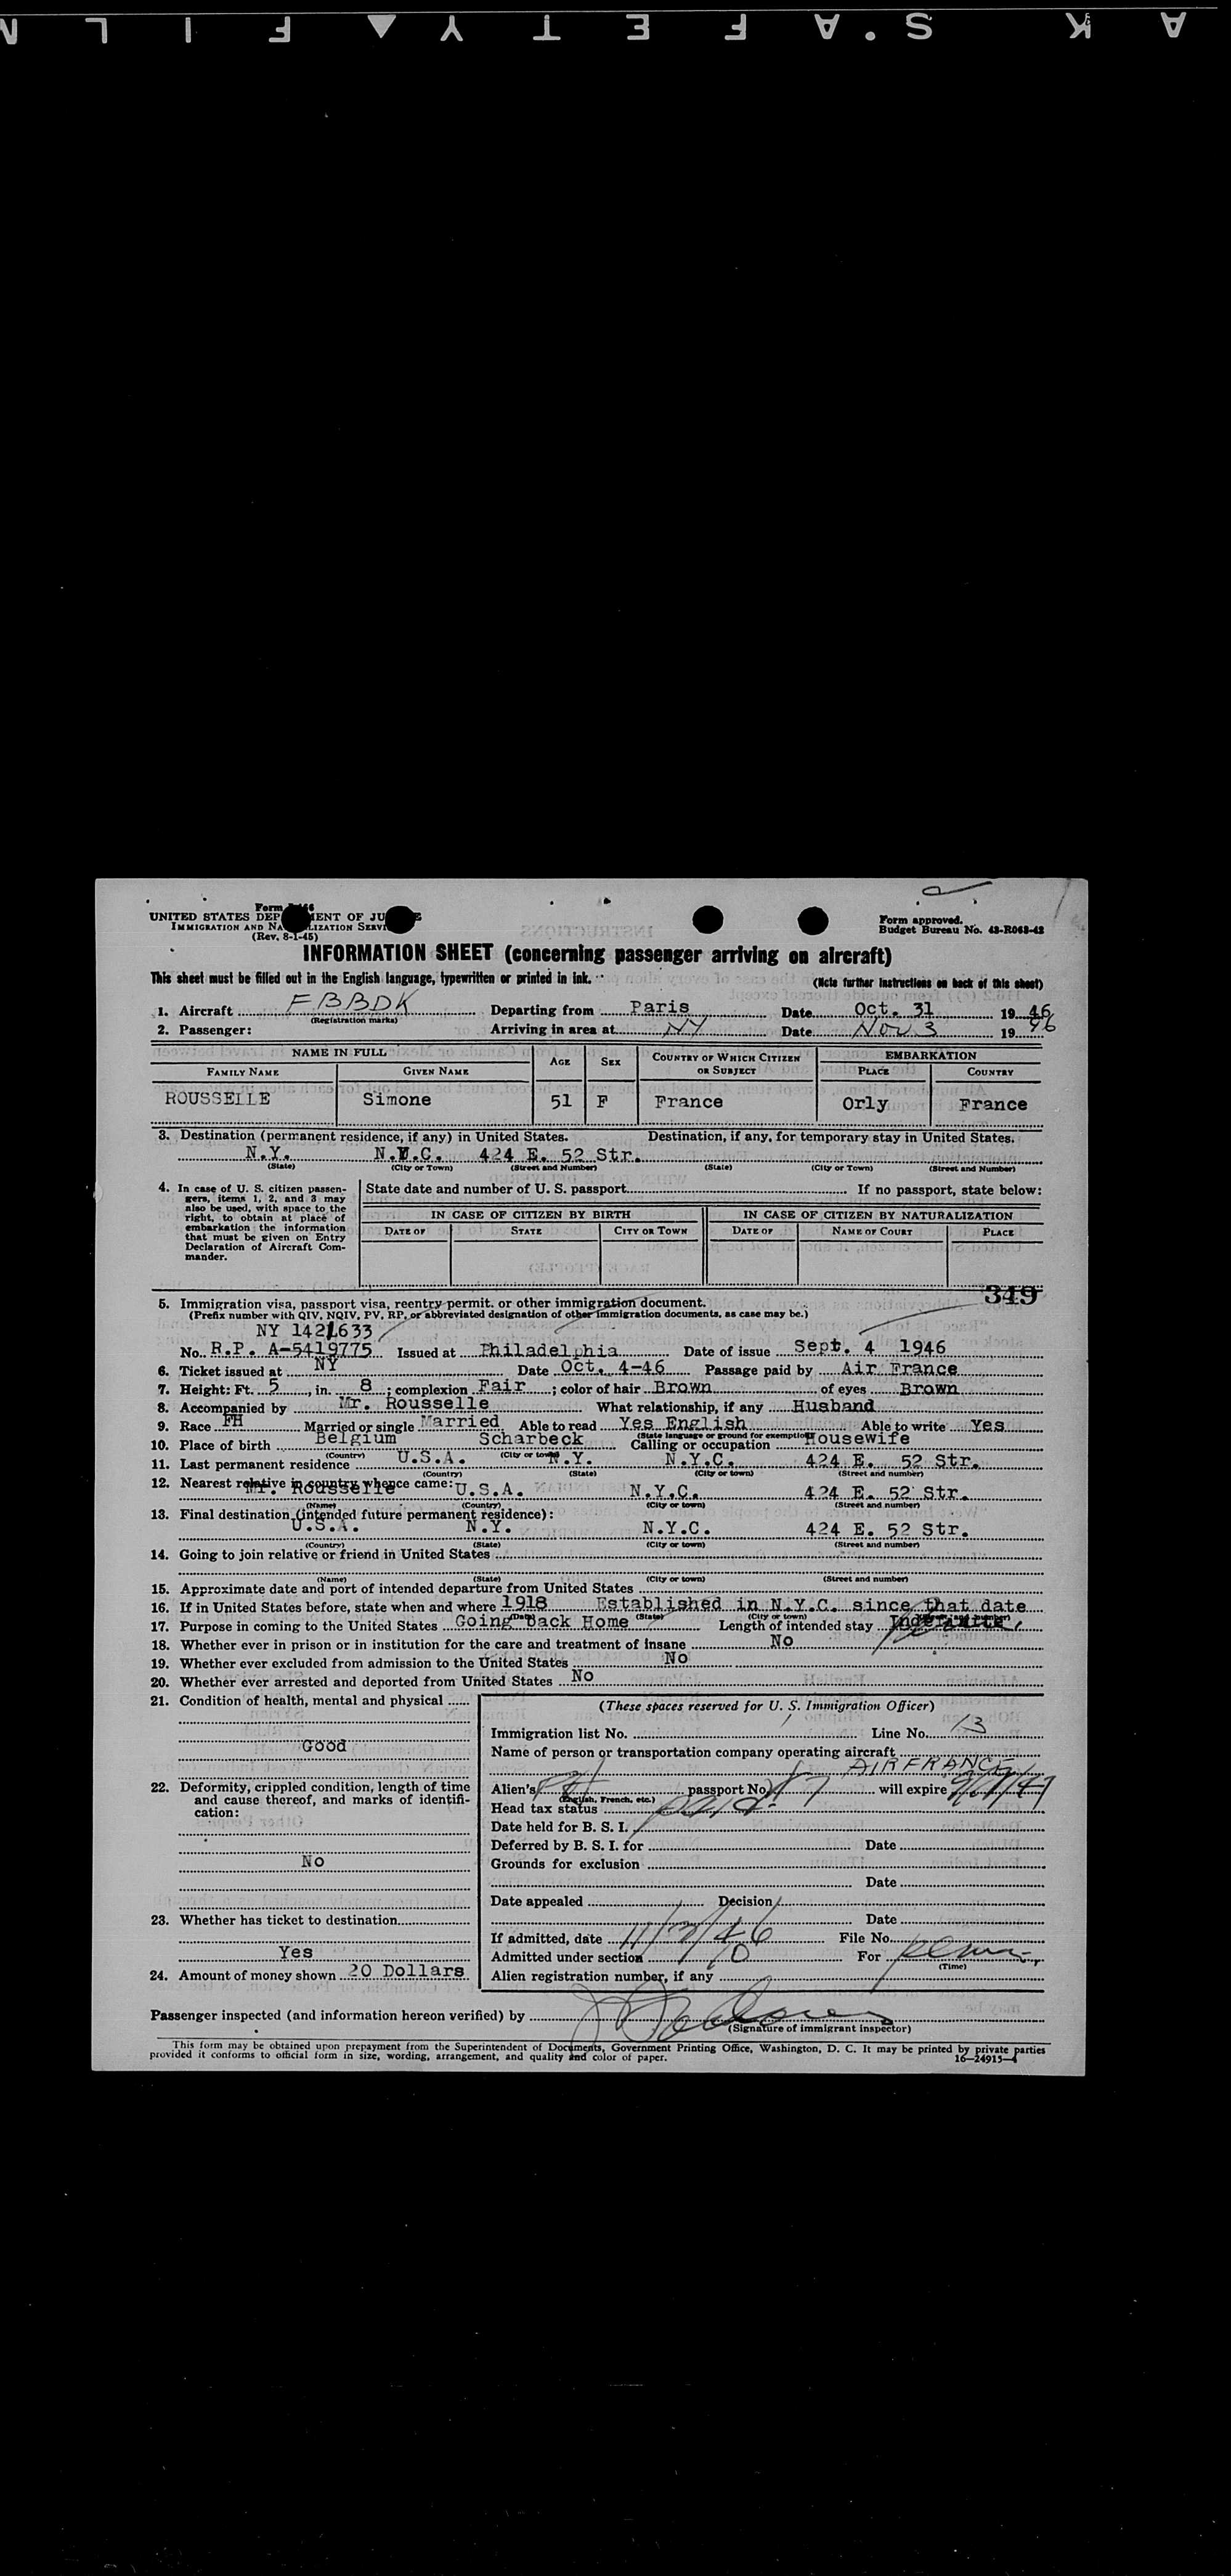 A K S • A F E T Y ▲ F I L
UNITED STATES DEP MENT OF JU E
IMMIGRATION AND NA LIZATION SERVI
(Rev. 8-1-45)
Form approved.
Budget Bureau No. 43-R063-42
INFORMATION SHEET (concerning passenger arriving on aircraft)
This sheet must be filled out in the English language, typewritten or printed in ink.
(Note further instructions on back of this sheet)
1. Aircraft FBBDK Departing from Paris Date Oct. 31 1946
(Registration marks)
2. Passenger: Arriving in area at NY Date Nov 3 1946
NAME IN FULL AGE SEX COUNTRY OF WHICH CITIZEN OR SUBJECT EMBARKATION
FAMILY NAME GIVEN NAME PLACE COUNTRY
ROUSSELLE Simone 51 F France Orly France
3. Destination (permanent residence, if any) in United States. Destination, if any, for temporary stay in United States.
N.Y. N.Y.C. 424 E. 52 Str.
(State) (City or Town) (Street and Number) (State) (City or Town) (Street and Number)
4. In case of U. S. citizen passengers, items 1, 2, and 3 may also be used, with space to the right, to obtain at place of embarkation the information that must be given on Entry Declaration of Aircraft Commander.
State date and number of U. S. passport If no passport, state below:
IN CASE OF CITIZEN BY BIRTH IN CASE OF CITIZEN BY NATURALIZATION
DATE OF STATE CITY OR TOWN DATE OF NAME OF COURT PLACE
349
5. Immigration visa, passport visa, reentry permit, or other immigration document.
(Prefix number with QIV, NQIV, PV, RP, or abbreviated designation of other immigration documents, as case may be.)
NY 1421633
No. R.P. A-5419775 Issued at Philadelphia Date of issue Sept. 4 1946
6. Ticket issued at NY Date Oct. 4-46 Passage paid by Air France
7. Height: Ft. 5, in. 8; complexion Fair; color of hair Brown of eyes Brown
8. Accompanied by Mr. Rousselle What relationship, if any Husband
9. Race FH Married or single Married Able to read Yes English Able to write Yes
(State language or ground for exemption)
10. Place of birth Belgium Scharbeck Calling or occupation Housewife
(Country) (City or town)
11. Last permanent residence U.S.A. N.Y. N.Y.C. 424 E. 52 Str.
(Country) (State) (City or town) (Street and number)
12. Nearest relative in country whence came: Mr. Rousselle U.S.A. N.Y.C. 424 E. 52 Str.
(Name) (Country) (City or town) (Street and number)
13. Final destination (intended future permanent residence):
U.S.A. N.Y. N.Y.C. 424 E. 52 Str.
(Country) (State) (City or town) (Street and number)
14. Going to join relative or friend in United States
(Name) (State) (City or town) (Street and number)
15. Approximate date and port of intended departure from United States
16. If in United States before, state when and where 1918 Established in N.Y.C. since that date
(Date) (State) (City or town)
17. Purpose in coming to the United States Going back Home Length of intended stay
18. Whether ever in prison or in institution for the care and treatment of insane No
19. Whether ever excluded from admission to the United States No
20. Whether ever arrested and deported from United States No
21. Condition of health, mental and physical
Good
22. Deformity, crippled condition, length of time and cause thereof, and marks of identification:
No
23. Whether has ticket to destination
Yes
24. Amount of money shown 20 Dollars
(These spaces reserved for U. S. Immigration Officer)
Immigration list No. 1 Line No. 13
Name of person or transportation company operating aircraft
AIR FRANCE
Alien's passport No. will expire
(English, French, etc.)
Head tax status
Date held for B. S. I.
Deferred by B. S. I. for Date
Grounds for exclusion
Date
Date appealed Decision
Date
If admitted, date 11/3/46 File No.
Admitted under section For
(Time)
Alien registration number, if any
Passenger inspected (and information hereon verified) by
(Signature of immigrant inspector)
This form may be obtained upon prepayment from the Superintendent of Documents, Government Printing Office, Washington, D. C. It may be printed by private parties
provided it conforms to official form in size, wording, arrangement, and quality and color of paper. 16—24915-4